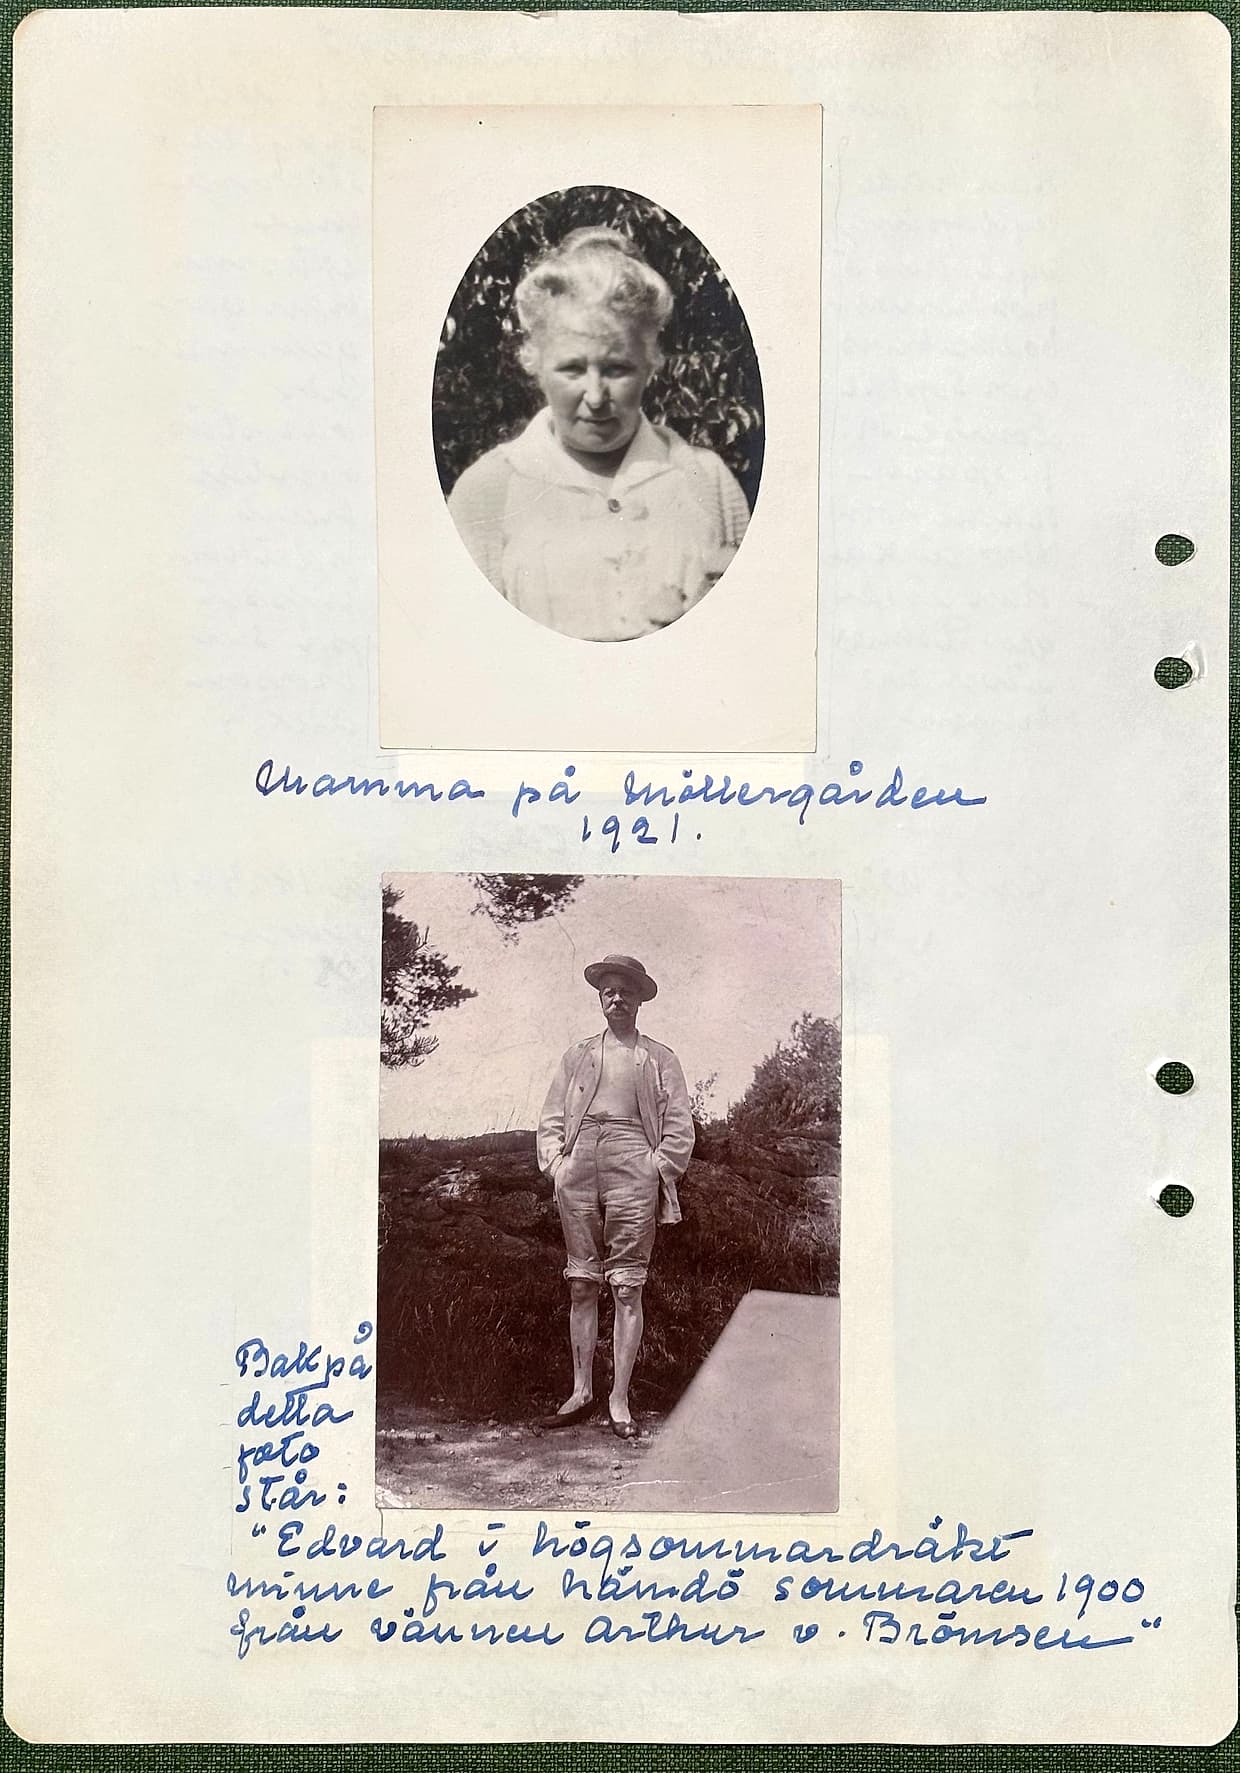 Mamma på Möllergården
1921.
Bakpå
detta
foto
står:
"Edvard i högsommardräkt
minne från Nämdö sommaren 1900
från vännen Arthur v. Brömsen"